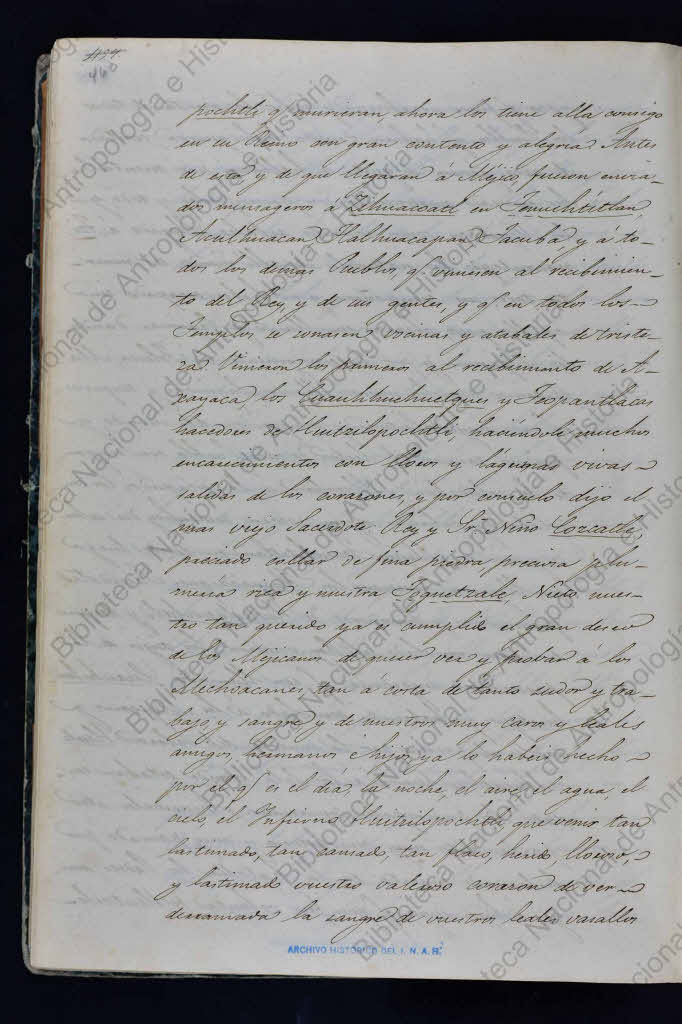 460
pochtli q.^e murieran, ahora los tiene alla consigo
en su Reino con gran contento y alegria. Antes
de esto y de que llegaran á Méjico, fueron envia-
dos mensageros á Zihuacoatl en Tenuchtitlan,
Aculhuacan Tlalhuacapan Tacuba, y á to-
dos los demas Pueblos, q.^e viniesen al recibimien-
to del Rey y de sus gentes, y q.^e en todos los
Templos se sonasen vocinas y atabales de triste-
za. Vinieron los primeros al recibimiento de A-
xayaca, los Cuauhhuehuetques y Teopantlacas
hacedores de Huitzilopochtli, haciéndole muchos
encarecimientos con lloros y lágrimas vivas
salidas de los corazones, y por consuelo dijo el
mas viejo Sacerdote Rey y Sr. Niño Cozcatle,
preciado collar de fina piedra preciosa plu-
meria rica y nuestra Toquetzale, Nieto nues-
tro tan querido ya es cumplido el gran deseo
de los Mejicanos de querer ver y probar á los
Mechoacanes, tan á costa de tanto sudor y tra-
bajo, y sangre y de nuestros muy caros y leales
amigos, hermanos é hijos, ya lo habeis hecho
por el q.^e es el dia, la noche, el aire, el agua, el
cielo, el Infierno Huitzilopochtli que venis tan
lastimado, tan cansado, tan flaco, herido, lloroso,
y lastimado vuestro valeroso corazon de ver
derramada la sangre de vuestros leales vasallos
ARCHIVO HISTORICO DEL I. N. A. H.
Biblioteca Nacional de Antropología e Historia